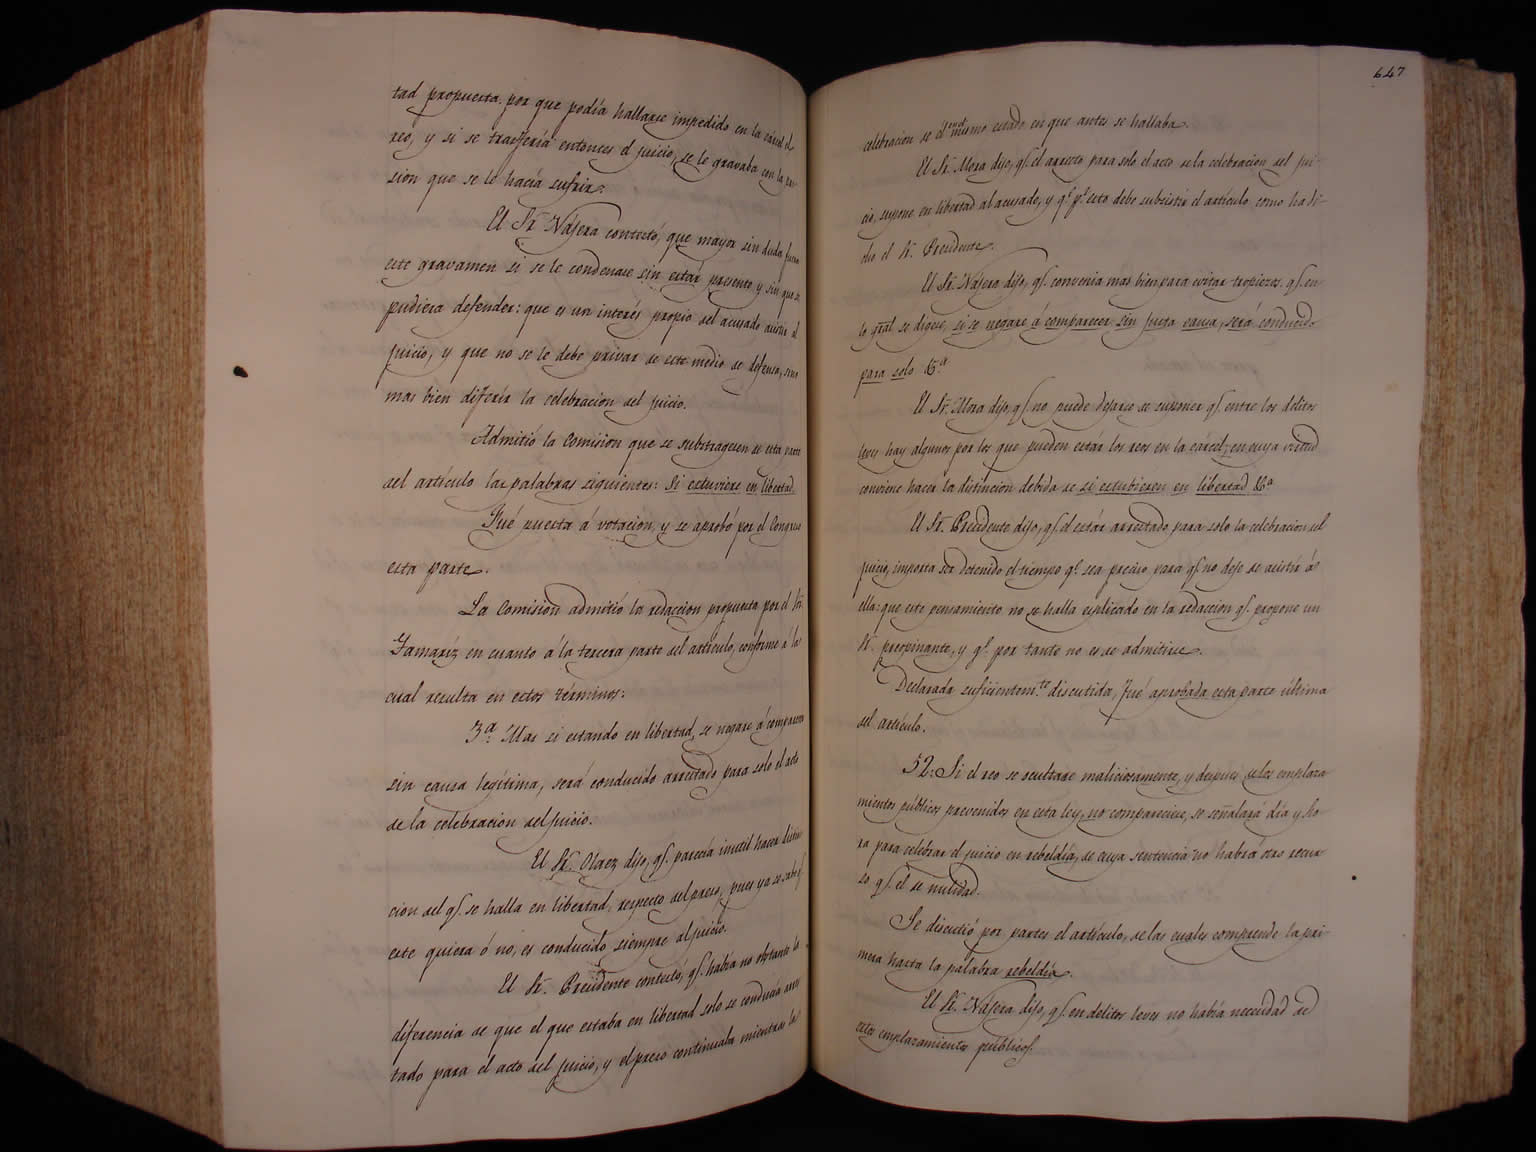 tad propuesta, por que podía hallarse impedido en la cárcel el
reo, y si se trasfería entonces el juicio, se le gravaba con la pri-
sion que se le hacía sufrir.
El Sr. Nájera contestó, que mayor sin duda fuera
este gravamen si se le condenase sin estár presente y sin que se
pudiera defender: que es un interés propio del acusado asistir al
juicio, y que no se le debe privar de este medio de defensa, sino
mas bien diferir la celebracion del juicio.
Admitió la Comision que se substragesen de esta parte
del artículo las palabras siguientes: si estuviere en libertad.
Fué puesta á votacion, y se aprobó por el Congreso
esta parte.
La Comision admitió la redaccion propuesta por el Sr.
Gamaríz en cuanto á la tercera parte del artículo, conforme á la
cual resulta en estos términos:
3ª. Mas si estando en libertad, se negare á comparecer
sin causa legítima, será conducido arrestado para solo el acto
de la celebracion del juicio.
El Sr. Olaez dijo, q. parecía inutil hacer distin-
cion del q. se halla en libertad, respecto del preso, pues ya se sabe q.
este quiera ó no, es conducido siempre al juicio.
El Sr. Presidente contestó, q. había no obstante la
diferencia de que el que estaba en libertad solo se conducía arres-
tado para el acto del juicio, y el preso continuaba mientras la
647
celebracion se el mismo estado en que antes se hallaba.
El Sr. Mora dijo, q. el arresto para solo el acto de la celebracion del jui-
cio, supone en libertad al acusado, y q. p. esto debe subsistir el artículo como ha di-
cho el Sr. Presidente.
El Sr. Nájera dijo, q. convenia mas bien para evitar tropiezos, q. en
lo gral se digese, si se negare á comparecer sin justa causa, será conducido
para solo &.ª
El Sr. Mora dijo, q. no puede dejarse de suponer q. entre los delitos
leves hay algunos por los que pueden estár los reos en la cárcel, en cuya virtud
conviene hacer la distincion debida de si estubieren en libertad &ª
El Sr. Presidente dijo, q. el estár arrestado para solo la celebracion del
juicio, importa ser detenido el tiempo q. sea preciso, para q. no deje de asistir á
ella: que este pensamiento no se halla esplicado en la redaccion q. propone un
Sr. preopinante, y q. por tanto no es de admitirse.
Declarada suficientem.te discutida, fué aprobada esta parte última
del artículo.
52. Si el reo se ocultare maliciosamente, y despues de los emplaza-
mientos públicos prevenidos en esta ley, no compareciere, se señalará día y ho-
ra para celebrar el juicio en rebeldía, de cuya sentencia no habrá otro recur-
so q. el de nulidad.
Se discutió por partes el artículo, de las cuales comprende la pri-
mera hasta la palabra rebeldía.
El Sr. Nájera dijo, q. en delitos leves no había necesidad de
estos emplazamientos públicos.